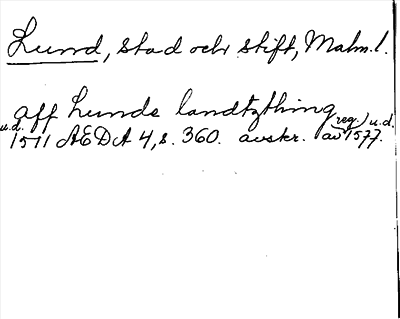 Lund, stad och stift, Malm.l.
aff Lunds landtzthing
u.d. 1511 ÆDA 4, s. 360. avskr. (reg.) av 1577. u.d.